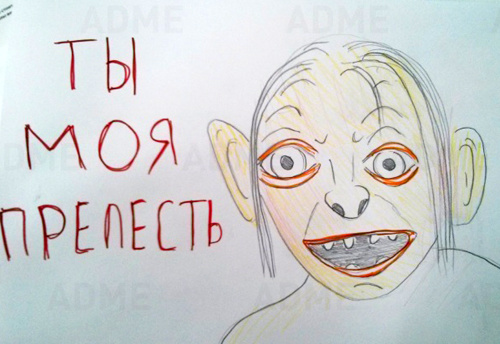 ТЫ
МОЯ
ПРЕЛЕСТЬ
ADME
ADME
ADME
ADME
ADME
ADME
ADME
ADME